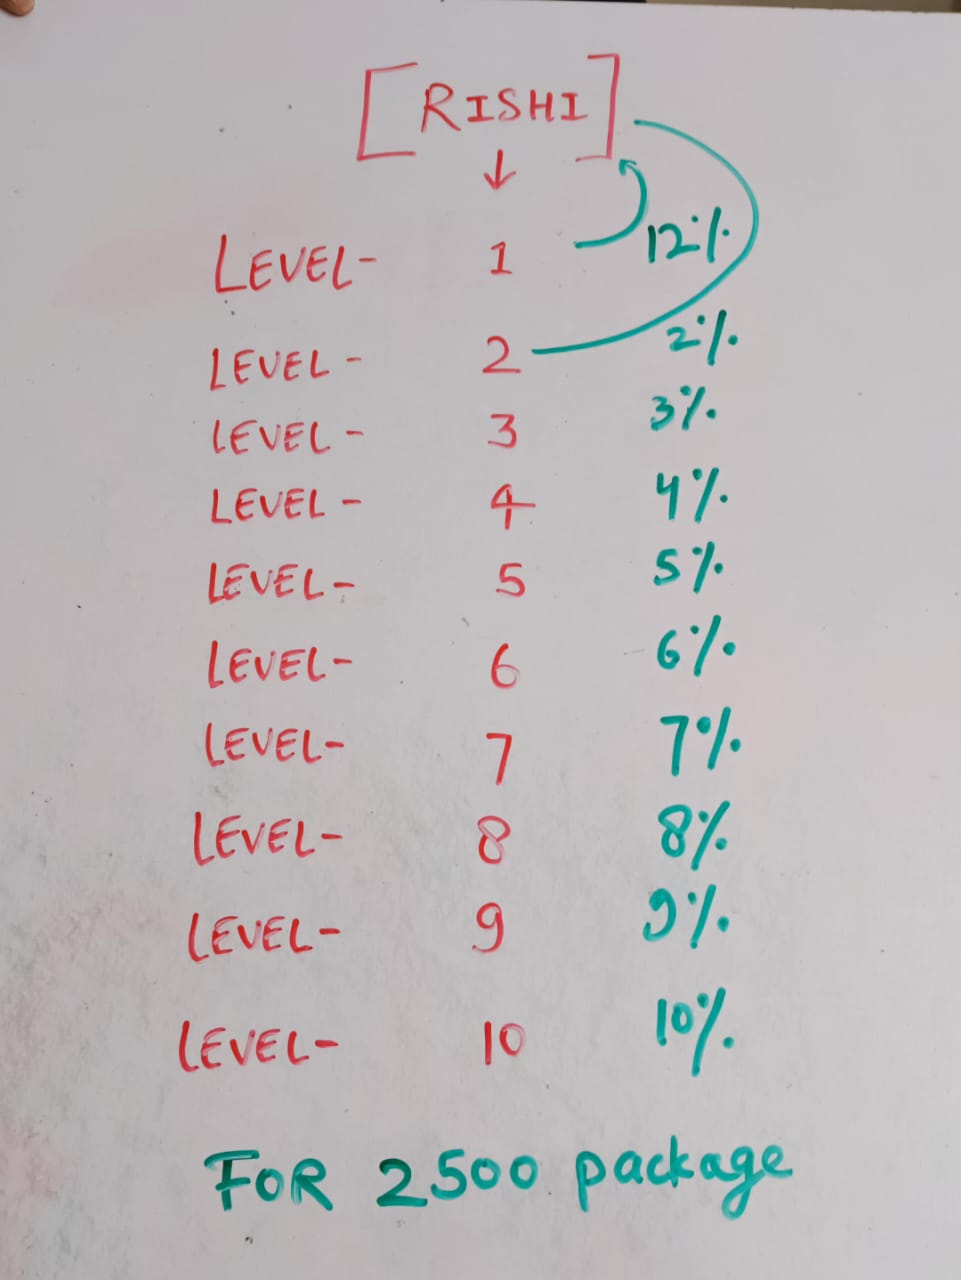 [RISHI]
LEVEL- 1 12%
LEVEL- 2 2%
LEVEL- 3 3%
LEVEL- 4 4%
LEVEL- 5 5%
LEVEL- 6 6%
LEVEL- 7 7%
LEVEL- 8 8%
LEVEL- 9 9%
LEVEL- 10 10%
FOR 2500 package